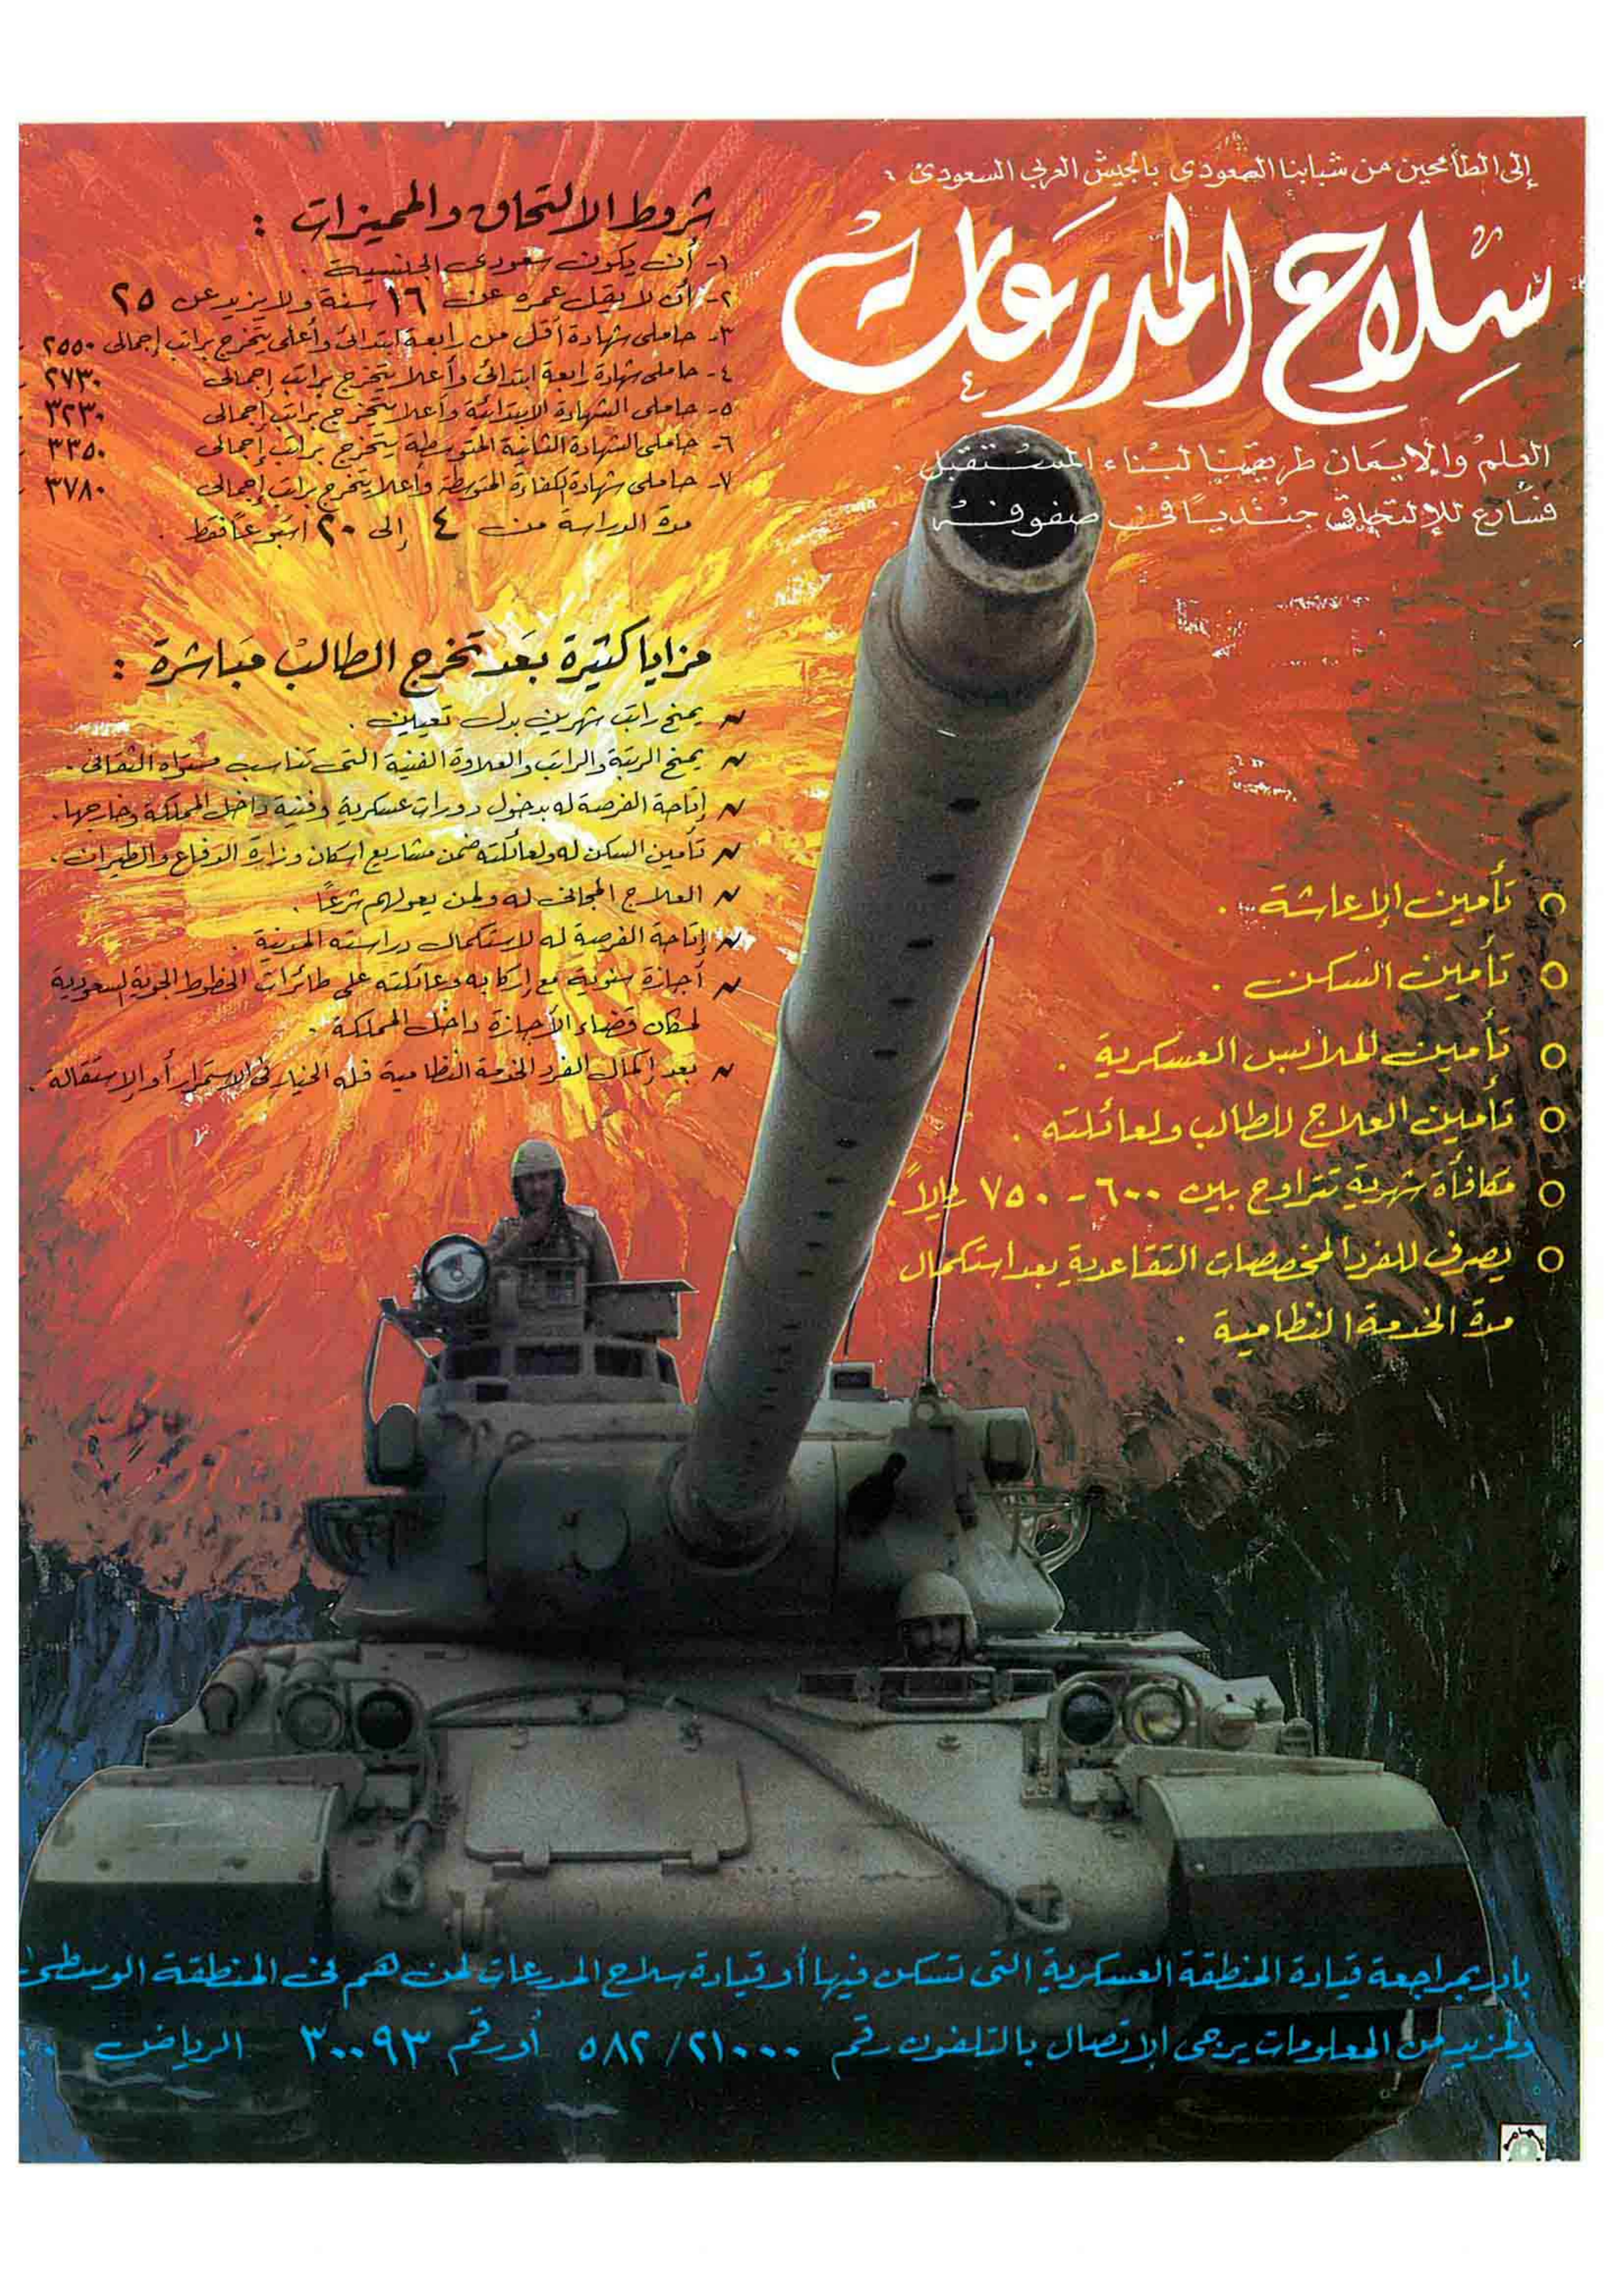 إلى الطامحين من شبابنا السعودي بالجيش العربي السعودي :
سلاح المدرعات
العلم والإيمان طريقنا لبناء المستقبل .
فسارع للإلتحاق جنديًا في صفوفه .
شروط الالتحاق والمميزات :
١- أن يكون سعودي الجنسية .
٢- أن لا يقل عمره عن ١٦ سنة ولا يزيد عن ٢٥
٣- حاملي شهادة أقل من رابعة ابتدائي وأعلى يتخرج براتب إجمالي ٢٥٥٠
٤- حاملي شهادة رابعة ابتدائي وأعلا يتخرج براتب إجمالي ٢٧٣٠
٥- حاملي الشهادة الابتدائية وأعلا يتخرج براتب إجمالي ٣٢٣٠
٦- حاملي الشهادة الثانية المتوسطة يتخرج براتب إجمالي ٣٣٥٠
٧- حاملي شهادة الكفاءة المتوسطة وأعلا يتخرج براتب إجمالي ٣٧٨٠
مدة الدراسة من ٤ إلى ٢٠ اسبوعًا فقط .
مزايا كثيرة بعد تخرج الطالب مباشرة :
يمنح راتب شهرين بدل تعيين .
يمنح الرتبة والراتب والعلاوة الفنية التي تناسب مستواه الثقافي .
إتاحة الفرصة له بدخول دورات عسكرية وفنية داخل المملكة وخارجها .
تأمين السكن له ولعائلته ضمن مشاريع اسكان وزارة الدفاع والطيران .
العلاج المجاني له ولمن يعولهم شرعًا .
إتاحة الفرصة له لاستكمال دراسته المدنية .
أجازة سنوية مع إركابه وعائلته على طائرات الخطوط الجوية السعودية
لمكان قضاء الأجازة داخل المملكة .
بعد إكمال الفرد الخدمة النظامية فله الخيار في الاستمرار أو الاستقالة .
○ تأمين الإعاشة .
○ تأمين السكن .
○ تأمين الملابس العسكرية .
○ تأمين العلاج للطالب ولعائلته .
○ مكافأة شهرية تتراوح بين ٦٠٠ - ٧٥٠ ريالاً .
○ يصرف للفرد المخصصات التقاعدية بعد استكمال
مدة الخدمة النظامية .
بادر بمراجعة قيادة المنطقة العسكرية التي تسكن فيها أو قيادة سلاح المدرعات لمن هم في المنطقة الوسطى
ولمزيد من المعلومات يرجى الاتصال بالتلفون رقم ٥٨٢/٢١٠٠٠ أو رقم ٣٠٠٩٣ الرياض ..